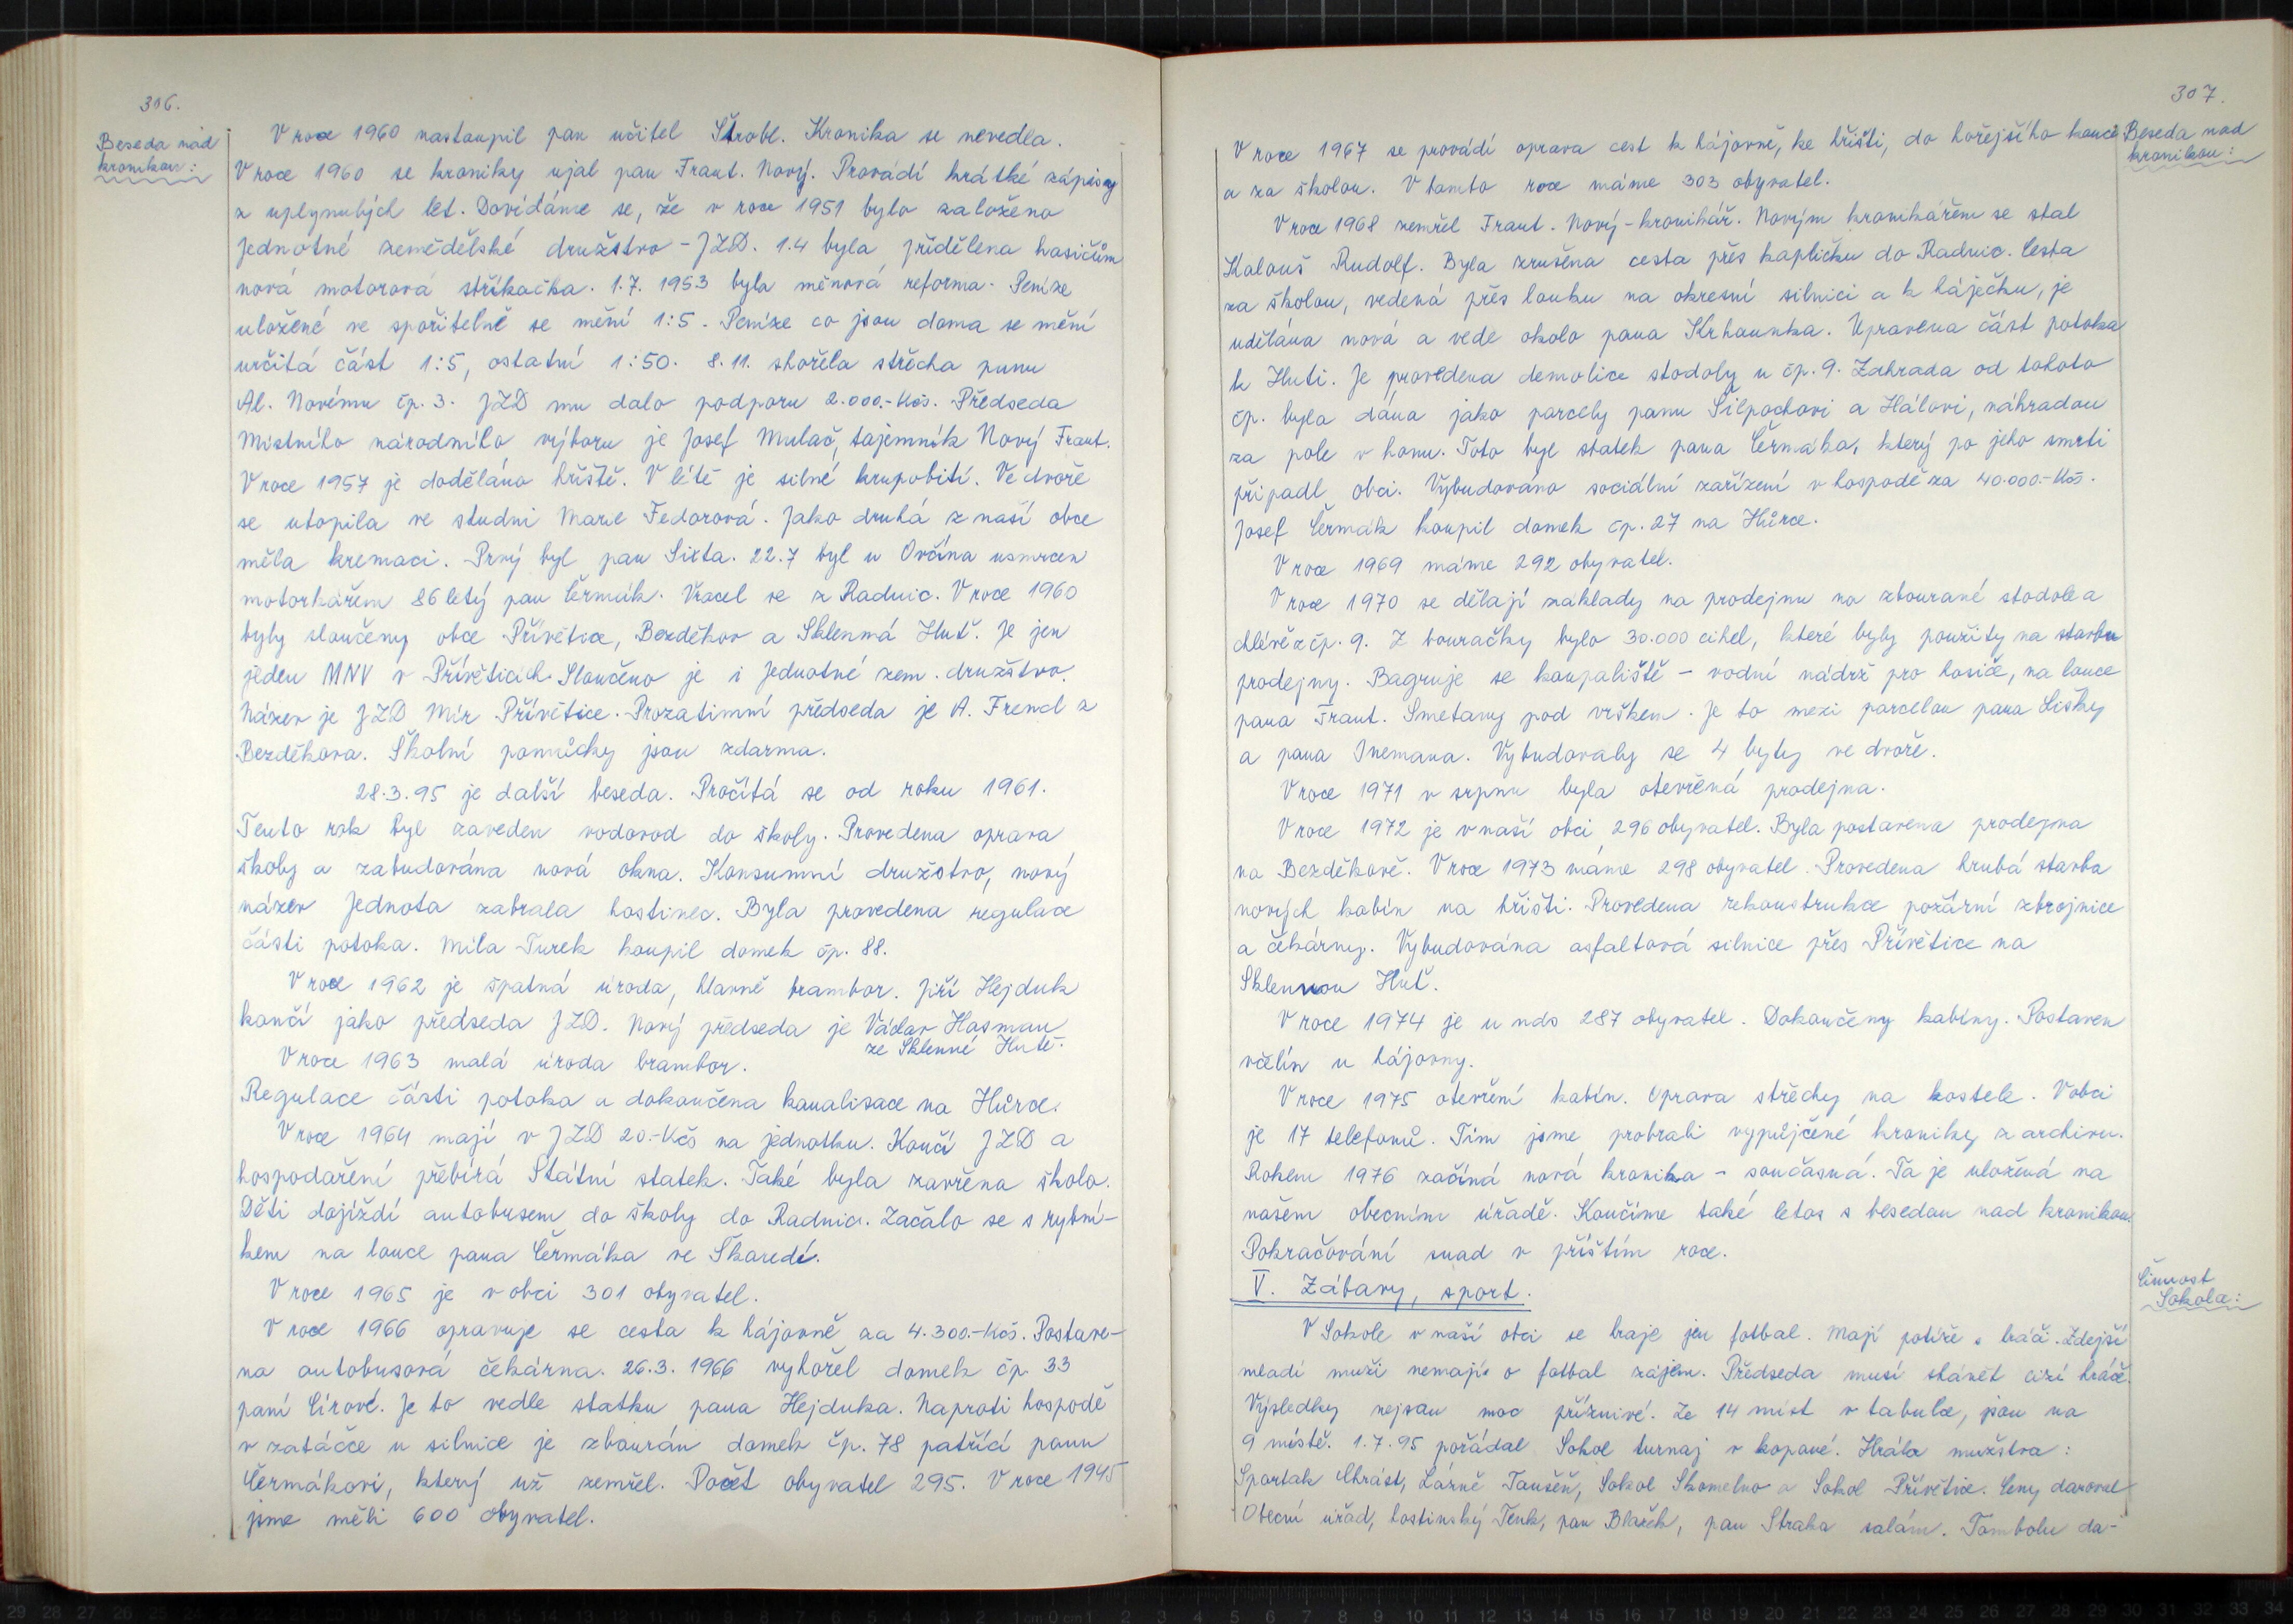 306.
Beseda nad
kronikou:
V roce 1960 nastoupil pan učitel Štrobl. Kronika se nevedla.
V roce 1960 se kroniky ujal pan Frant. Nový. Provádí krátké zápisy
z uplynulých let. Dovídáme se, že v roce 1951 bylo založeno
Jednotné zemědělské družstvo - JZD. 1.4 byla přidělena hasičům
nová motorová stříkačka. 1.7. 1953 byla měnová reforma. Peníze
uložené ve spořitelně se mění 1:5. Peníze co jsou doma se mění
určitá část 1:5, ostatní 1:50. 8.11. shořela střecha panu
Al. Novému čp. 3. JZD mu dalo podporu 2.000.-Kčs. Předseda
Místního národního výboru je Josef Mulač, tajemník Nový Frant.
V roce 1957 je doděláno hřiště. V létě je silné krupobití. Ve dvoře
se utopila ve studni Marie Fedorová. Jako druhá z naší obce
měla kremaci. Prvý byl pan Sixta. 22.7 byl u Ovčína usmrcen
motorkářem 86 letý pan Čermák. Vracel se z Radnic. V roce 1960
byly sloučeny obce Přívětice, Bezděkov a Sklenná Huť. Je jen
jeden MNV v Příveticích. Sloučeno je i Jednotné zem. družstvo.
Název je JZD Mír Přívětice. Prozatimní předseda je A. Frencl z
Bezděkova. Školní pomůcky jsou zdarma.
28.3.95 je další beseda. Pročítá se od roku 1961.
Tento rok byl zaveden vodovod do školy. Provedena oprava
školy a zabudována nová okna. Konsumní družstvo, nový
název Jednota zabrala hostinec. Byla provedena regulace
části potoka. Míla Turek koupil domek čp. 88.
V roce 1962 je špatná úroda, hlavně brambor. Jiří Hejduk
končí jako předseda JZD. Nový předseda je Václav Hasman
ze Sklenné Hutě.
V roce 1963 malá úroda brambor.
Regulace části potoka a dokončena kanalisace na Hůrce.
V roce 1964 mají v JZD 20.-Kčs na jednotku. Končí JZD a
hospodaření přebírá Státní statek. Také byla zavřena škola.
Děti dojíždí autobusem do školy do Radnic. Začalo se s rybní-
kem na louce pana Čermáka ve Škaredí.
V roce 1965 je v obci 301 obyvatel.
V roce 1966 opravuje se cesta k hájovně za 4.300.-Kčs. Postave-
na autobusová čekárna. 26.3. 1966 vyhořel domek čp. 33
paní Cirové. Je to vedle statku pana Hejduka. Naproti hospodě
v zatáčce u silnice je zbourán domek čp. 78 patřící panu
Čermákovi, který už zemřel. Počet obyvatel 295. V roce 1945
jsme měli 600 obyvatel.
307.
Beseda nad
kronikou:
V roce 1967 se provádí oprava cest k hájovně, ke hřišti, do hořejšího konce
a za školou. V tomto roce máme 303 obyvatel.
V roce 1968 zemřel Frant. Nový - kronikář. Novým kronikářem se stal
Kalouš Rudolf. Byla zrušena cesta přes kapličku do Radnic. Cesta
za školou, vedená přes louku na okresní silnici a k háječku, je
udělána nová a vede okolo pana Krhounka. Upravena část potoka
k Huti. Je provedena demolice stodoly u čp. 9. Zahrada od tohoto
čp. byla dána jako parcely panu Šilpochovi a Hálovi, náhradou
za pole v honu. Toto byl statek pana Čermáka, který po jeho smrti
připadl obci. Vybudováno sociální zařízení v hospodě za 40.000.-Kčs.
Josef Čermák koupil domek čp. 27 na Hůrce.
V roce 1969 máme 292 obyvatel.
V roce 1970 se dělají základy na prodejnu na zbourané stodole a
chlévě z čp. 9. Z bouračky bylo 30.000 cihel, které byly použity na stavbu
prodejny. Bagruje se koupaliště - vodní nádrž pro hasiče, na louce
pana Frant. Smetany pod vrškem. Je to mezi parcelou pana Lišky
a pana Inemana. Vybudovaly se 4 byty ve dvoře.
V roce 1971 v srpnu byla otevřená prodejna.
V roce 1972 je v naší obci 296 obyvatel. Byla postavena prodejna
na Bezděkově. V roce 1973 máme 298 obyvatel. Provedena hrubá stavba
nových kabin na hřišti. Provedena rekonstrukce požární zbrojnice
a čekárny. Vybudována asfaltová silnice přes Přívětice na
Sklennou Huť.
V roce 1974 je u nás 287 obyvatel. Dokončeny kabiny. Postaven
včelín u hájovny.
V roce 1975 otevření kabin. Oprava střechy na kostele. V obci
je 17 telefonů. Tím jsme probrali vypůjčené kroniky z archivu.
Rokem 1976 začíná nová kronika - současná. Ta je uložená na
našem obecním úřadě. Končíme také letos s besedou nad kronikou.
Pokračování snad v příštím roce.
V. Zábavy, sport.
Činnost
Sokola:
V Sokole v naší obci se hraje jen fotbal. Mají potíže s hráči. Zdejší
mladí muži nemají o fotbal zájem. Předseda musí shánět cizí hráče.
Výsledky nejsou moc příznivé. Ze 14 míst v tabulce, jsou na
9 místě. 1.7.95 pořádal Sokol turnaj v kopané. Hrála mužstva:
Spartak Chrást, Lázně Toušeň, Sokol Skomelno a Sokol Přívětice. Ceny daroval
Obecní úřad, hostinský Tenk, pan Blažek, pan Straka salám. Tombolu da-